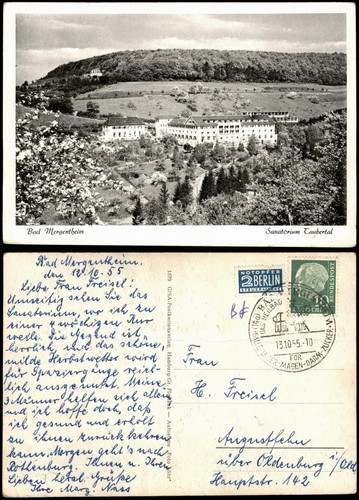 Bad Mergentheim
Sanatorium Taubertal
Bad Mergentheim.
den 12.10.55
Liebe Frau Freisel!
Umseitig sehen Sie das
Sanatorium, wo ich zu
einer 4 wöchigen Kur
weile. Die Gegend ist
herrlich, und das schöne,
milde Herbstwetter wird
für Spaziergänge reich-
lich ausgenutzt. Meine
3 Männer helfen sich allein
und ich hoffe doch, daß
ich gesund und erholt
zu ihnen zurück kehren
kann. Morgen geht's nach
Rothenburg. Ihnen u. Ihren
Lieben herzl. Grüße
Ihre Marg. Nass
NOTOPFER
2 BERLIN
STEUERMARKE
13.10.55.-10
FÜR
MAGEN-DARM-ZUCKER
Frau
H. Freisel
Augustfehn
über Oldenburg i/Old
Hauptstr. 142